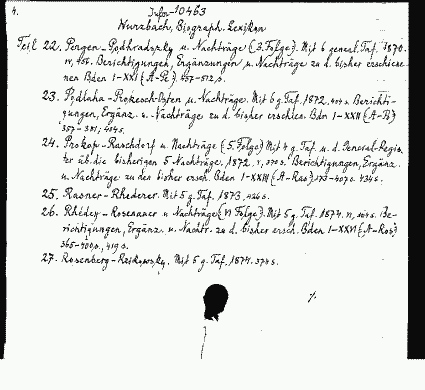 4.
Infor-10463
Wurzbach, Biograph. Lexikon
Teil 22. Pergen-Podhradszky u. Nachträge (3. Folge). Mit 6 geneal. Taf. 1870.
IV, 456. Berichtigungen, Ergänzungen u. Nachträge zu d. bisher erschiene-
nen Bden I-XXI (A-Pe). 457-512,
23. Podlaha-Prokesch-Osten u. Nachträge. Mit 6 g. Taf. 1872. Berichti-
gungen, Ergänz. u. Nachträge zu d. bisher erschien. Bden I-XXII (A-Po)
357-381;
24. Prokop-Raschdorf u. Nachträge (5. Folge) Mit 4 g. Taf. u. d. General-Regis-
ter üb. die bisherigen 5 Nachträge. 1872. Berichtigungen, Ergänz.
u. Nachträge zu den bisher ersch. Bden I-XXIII (A-Ras) 434 s.
25. Rasner-Rhederer. Mit 5 g. Taf. 1873. 426 s.
26. Rhédey-Rosenauer u Nachträge (VI Folge). Mit 5 g. Taf. 1874. Be-
richtigungen, Ergänz. u. Nachtr. zu d. bisher ersch. Bden I-XXVI (A-Ros)
365-400., 419 s.
27. Rosenberg-Rzikowsky. Mit 5 g. Taf. 1874. 374 s.